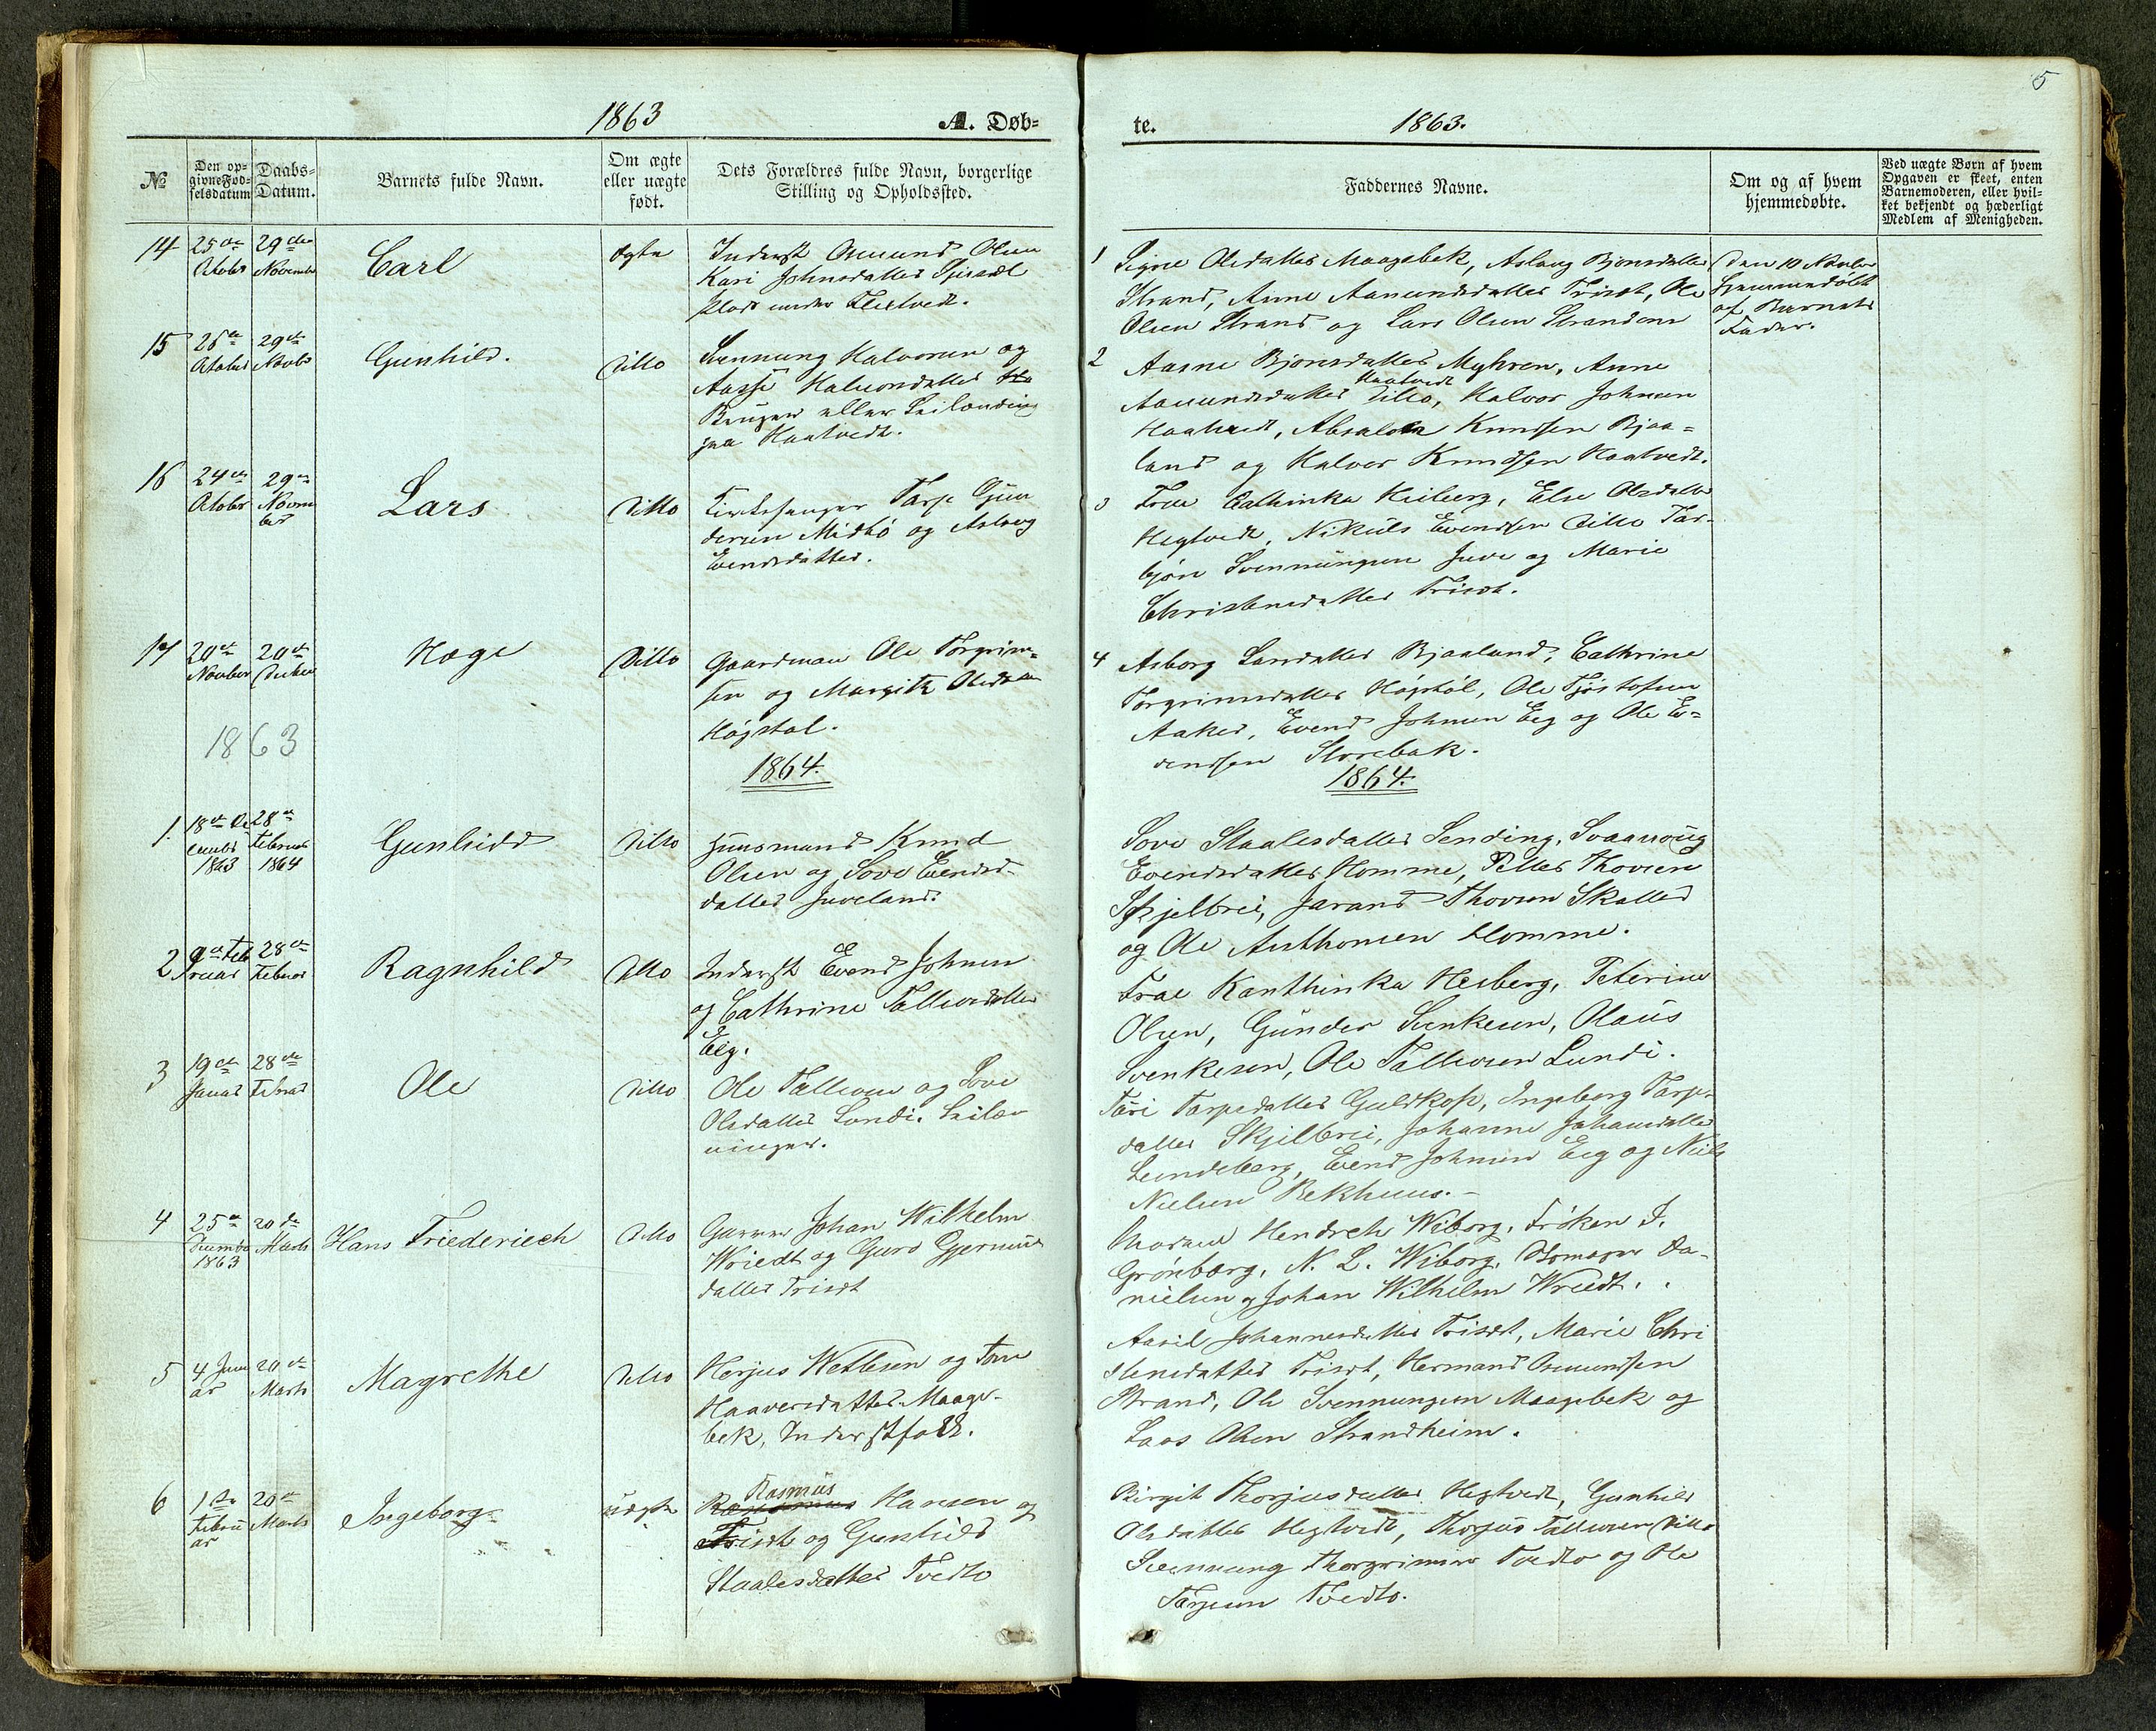 5
1863
A. Døb=
te.
1863.
№
Den op=
givne Fød=
selsdatum
Daabs=
Datum.
Barnets fulde Navn.
Om ægte
eller uægte
født.
Dets Forældres fulde Navn, borgerlige
Stilling og Opholdssted.
Faddernes Navne.
Om og af hvem
hjemmedøbte.
Ved uægte Børn af hvem
Opgaven er skeet, enten
Barnemoderen, eller hvil=
ket bekjendt og hæderligt
Medlem af Menigheden.
14
25de
Octobr
29de
November
Carl
Ægte
Inderst Omund Olsen
Kari Johnsdatter
Plads under
1 Signe Olsdatter Maagebek, Aslaug Bjønsdatter
Strand, Anne Aamundsdatter Trisæt, Ole
Olsen Strand og Lars Olsen Stranden
Den 10 Novber
Hjemmedøbt
af Barnets
Fader.
15
25de
Octobr
29de
Novbr
Gunhild.
Ditto
Svennung Halvorsen og
Halvorsdatter
Bruger eller Leilænding
paa Haatvedt.
2 Aasne Bjønsdatter Myhren, Anne
Haatvedt
Aamundsdatter Ditto, Halvor Johnsen
Haatvedt, Absalon Knudsen Bjaa=
land og Halvor Knudsen Haatvedt.
16
24de
Octobr
29de
Novem
ber
Lars
Ditto
Kirkesanger Tarje Gun
dersen Midbø og Aslaug
Evendsdatter.
3 Frue Cathinka Heiberg, Else Olsdatter
Hegtvedt, Nikuls Evendsen Ditto Tar-
bjøn Svennungsen Juve og Marie
Christensdatter Trisæt.
17
20de
Novber
20de
Decber
Hæge
Ditto
Gaardman Ole Torgrim=
sen og Margith Olsdatter
Høgstøl.
4 Asborg Larsdatter Bjaaland, Cathrine
Torgrimsdatter Høgstøl, Ole Tjøstofsen
Aaker, Evend Johnsen Eeg og Ole Ev=
endsen Storebak.
1863
1864.
1864.
1.
18de De
cember
1863
28de
Februar
1864
Gunhild
Ditto
Huusmand Knud
Olsen og Sove Evends-
datter Juveland.
Sove Staalesdatter Sending, Svannoug
Evendsdatter Homme, Petter Thovsen
Skjelbrei, Jarand Thovsen Skatter
og Ole Anthonsen Homme.
2
9de Feb
ruar
28de
Februar
Ragnhild
Ditto
Inderst Evend Johnsen
og Cathrine Tallevsdatter
Eeg.
Frue Kanthinka Heiberg, Peterine
Olsen, Gunder Svenkesen, Olaus
Svenkesen, Ole Tallevsen Lundi.
3
19de
Januar
28de
Februar
Ole
Ditto
Ole Tallevsen og Sove
Olsdatter Lundi. Leilæn
ninger.
Tarjedatter Guldkop, Ingeborg Tarje-
datter Skjelbrei, Johanne Johansdatter
Lundeberg, Evend Johnsen Eeg og Niels
Nielsen Bekhuus.-
4
25de
December
1863
20de
Marts
Hans Friederiech
Ditto
Johan Wilhelm
Wriedt og Guro Gjermun
datter Trisæt
Madame Hendreh Wiborg, Frøken J.
Grønberg, N. L. Wiborg, Da-
nielsen og Johan Wilhelm Wriedt.
5
4 Janu
ar
20de
Marts
Magrethe
Ditto
Herjus Wetlesen og Tone
Haaversdatter Maage-
bek, Inderstfolk.
Aasil Johannesdatter Trisæt, Marie Chri
stensdatter Trisæt, Hermand Osmundsen
Strand, Ole Svennungsen Maagebek og
Lars Olsen Strandheim.
6
1ste
Febru
ar
20de
Marts
Ingeborg
uægte
Rasmus
Hansen og
Trisæt og Gunhild
Staalesdatter Tvedto
Birgit Thorjusdatter Hegtvedt, Gunhild
Olsdatter Hegtvedt, Thorjus Tallevsen Ditto
Svennung Thorgrimsen Tvedto og Ole
Tarjesen Tvedto.